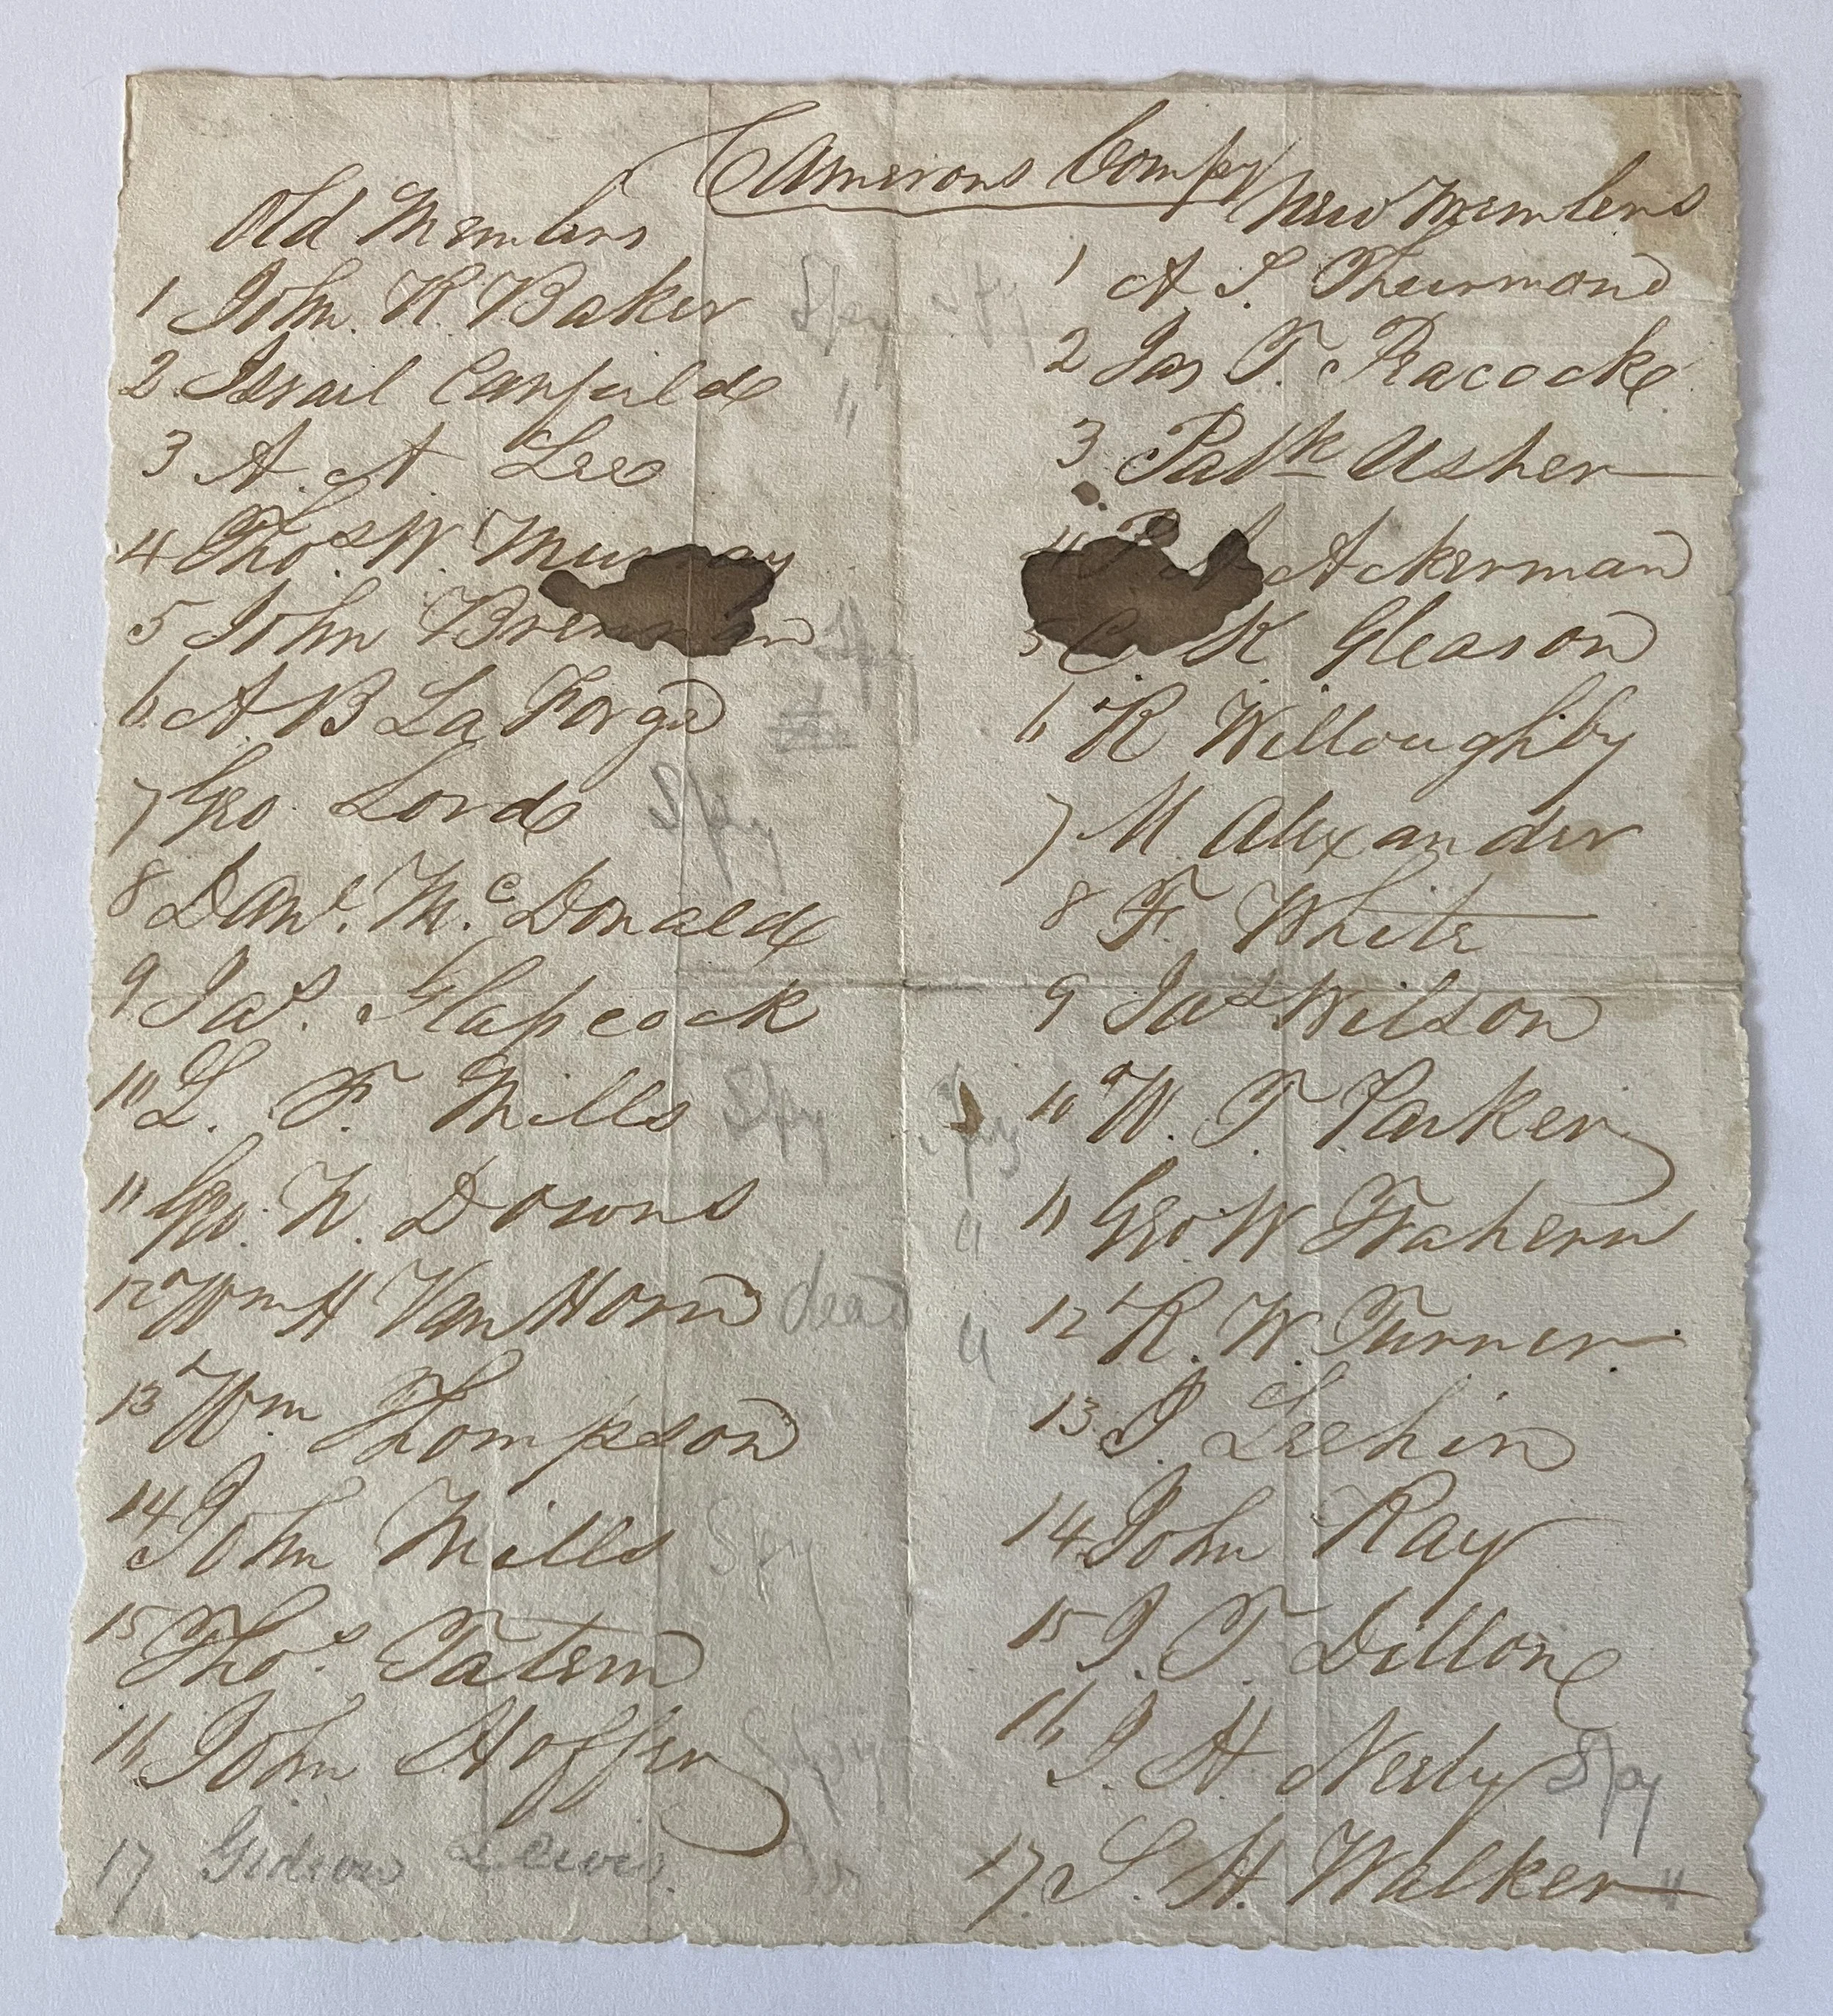 Camerons Compy
Old Members
1 John. R. Baker Spy
2. Israel Canfield "
3 A. A. Lee
4 Thos. W. Murray
5 John Brennan Spy
6 A. B La Forge
7 Geo. Lord Spy
8 Danl. Mc. Donald
9 Jas. Glascock
10 L. F. Mills Spy
11 Geo. N. Downs
12 Wm H Van Horn dead
13 Wm Thompson
14 John Mills Spy
15 Thos. Tatem
16 John Hoffer Spy
17 Gideon Lewis
New Members
1 A. S. Thurmond
2 Jas T. Peacocke
3 Patk Usher
4 P A Ackerman
5 C K Gleason
6 R Willoughby
7 M. Alexander
8 F. White
9 Jas Wilson
Spy 10 W. T. Parker
" 11 Geo. W Trahern
" 12 R. W. Turner
13 I. Leehin
14 John Ray
15 J. T. Dillon
16 J. H. Neely Spy
17. S. H. Walker "